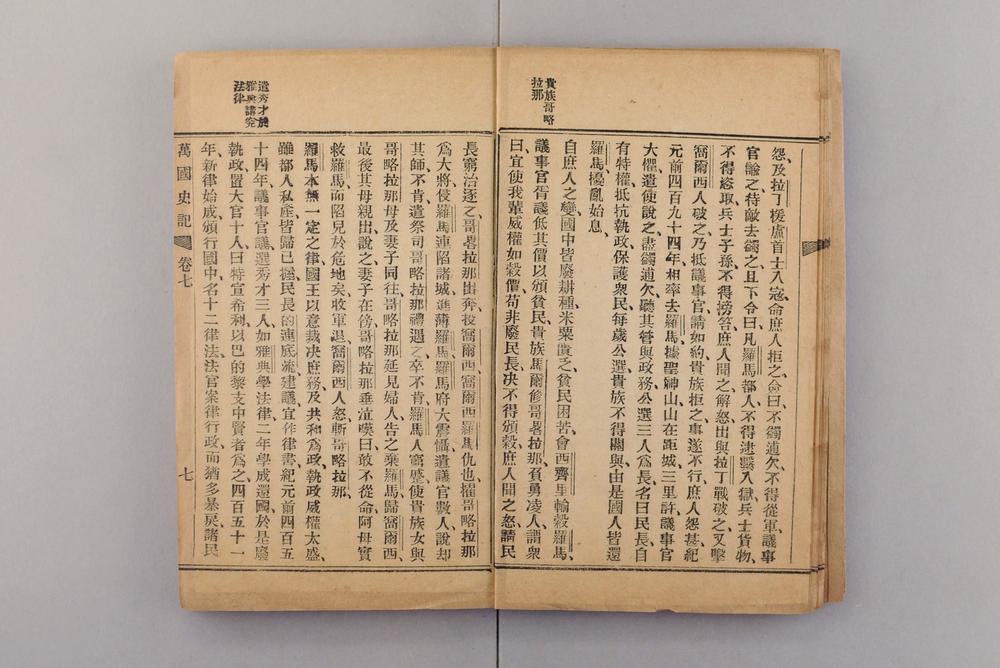 貴族哥略
拉那
怨及拉丁援盧首士入寇命庶人拒之僉曰不蠲逋欠不得從軍議事
官諭之待敵去蠲之且下令曰凡羅馬都人不得逮繫入獄兵士貨物
不得恣取兵士子孫不得搒笞庶人聞之解怒出與拉丁戰破之又擊
喬爾西人破之乃抵議事官請如約貴族拒之事遂不行庶人怨甚紀
元前四百九十四年相率去羅馬據聖神山山在距城三里許議事官
大懼遣使說之盡蠲逋欠聽其管與政務公選三人爲長名曰民長自
有特權抵抗執政保護衆民每歲公選貴族不得關與由是國人皆還
羅馬擾亂始息
自庶人之變國中皆廢耕種米粟匱乏貧民困苦會西齊里輸穀羅馬
議事官胥議低其價以頒貧民貴族馬爾修哥畧拉那負勇凌人謂衆
曰宜使我輩威權如穀價苟非廢民長决不得頒穀庶人聞之怒請民
遣秀才於
雅典講究
法律
長窮治逐之哥畧拉那出奔投喬爾西喬爾西羅馬仇也擢哥略拉那
爲大將侵羅馬連陷諸城進薄羅馬羅馬府大震慴遣議官數人說却
其師不肯遣祭司哥略拉那禮遇之卒不肯羅馬人窘蹙使貴族女與
哥略拉那母及妻子同往哥略拉那延見婦人告之棄羅馬歸喬爾西
最後其母親出說之妻子在傍哥略拉那垂泣嘆曰敢不從命阿母實
救羅馬而陷兒於危地矣收軍退喬爾西人怒斬哥略拉那
羅馬本無一定之律國王以意裁决庶務及共和爲政執政威權太盛
雖都人私產皆歸已握民長的連底流建議宜作律書紀元前四百五
十四年議事官議選秀才三人如雅典學法律二年學成還國於是廢
執政置大官十人曰特宣希利以巴的黎支中賢者爲之四百五十一
年新律始成頒行國中名十二律法法官案律行政而猶多暴戾諸民
萬國史記 卷七 七